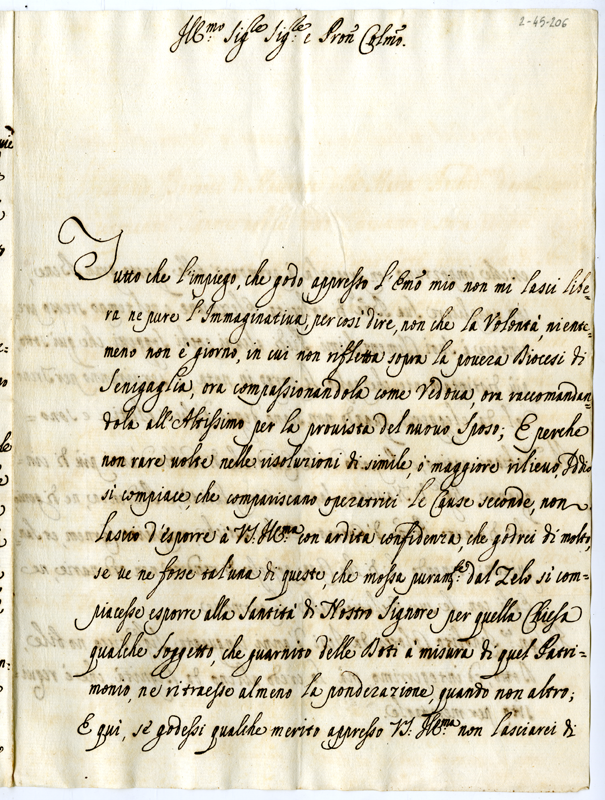 2-45-206
Ill.mo Sig.re Sig.re e Pron Colmo.
Tutto che l'impiego, che godo appresso l'Emo mio non mi lasci libe=
ra ne pure l'Immaginativa, per così dire, non che la Volontà, niente=
meno non è giorno, in cui non rifletta sopra la povera Diocesi di
Senigaglia, ora compassionandola come Vedova, ora raccomandan=
dola all'Altissimo per la provista del nuovo Sposo; E perche
non rare volte nelle risoluzioni di simile, ò maggiore rilievo, Iddio
si compiace, che compariscano operatrici le Cause seconde, non
lascio d'esporre à VS. Ill.ma con ardita confidenza, che godrei di molto,
se ve ne fosse tal'una di queste, che mossa puram.te dal Zelo si com=
piacesse esporre alla Santità di Nostro Signore per quella Chiesa
qualche Soggetto, che guarnito delle Doti à misura di quel Patri=
monio, ne ritraesse almeno la ponderazione, quando non altro;
E quì, se godessi qualche merito appresso VS. Ill.ma non lasciarei di